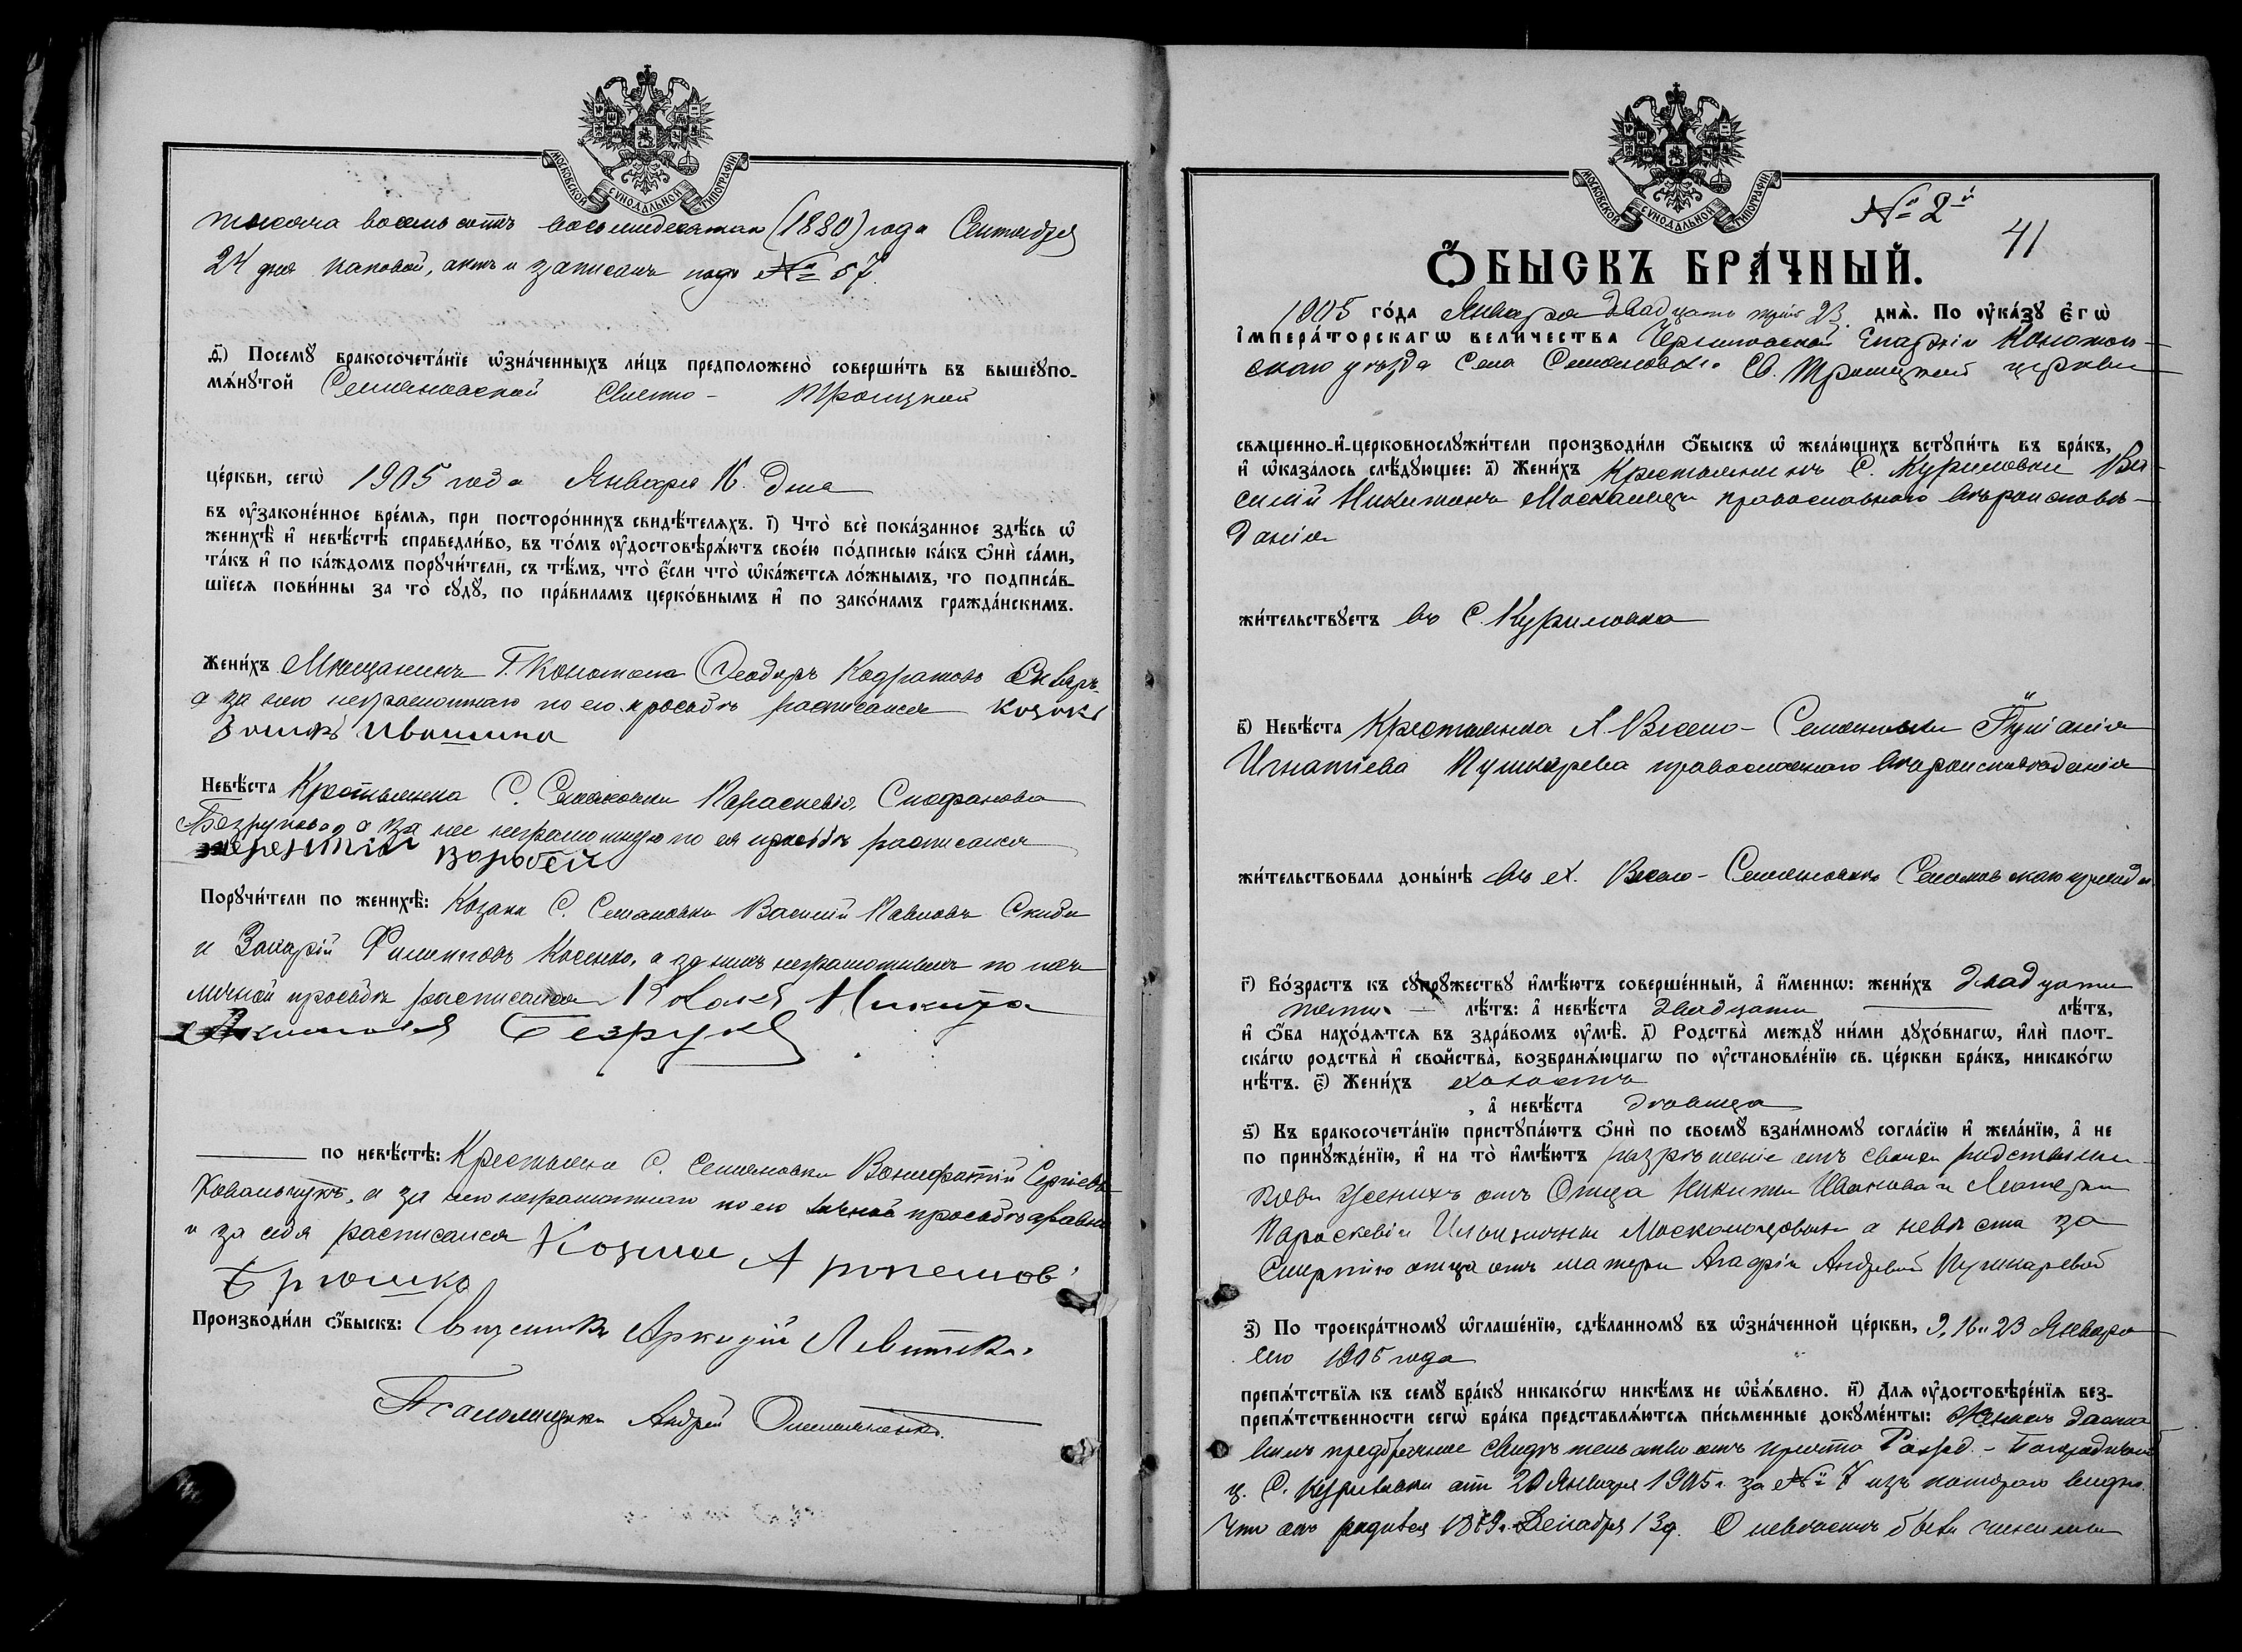 МОСКОВСКОЙ СУНОДАЛЬНОЙ ТИПОГРАФІИ
тысяча восемь сотъ восемидесятаго (1880) года Сентября
24 дня каковой, актъ и записанъ подъ № 57.
д҃) Посемꙋ̀ бракосочета́нїе ѡ҆зна́ченныхъ ли́цъ предположено̀ соверши́ть въ вышеꙋпо-
мѧ́нꙋтой Семяновской Свято - Троицкой
це́ркви, сегѡ̀ 1905 года Января 16. дня
въ ᲂу҆законе́нное вре́мѧ, при посторо́ннихъ свидѣ́телѧхъ. і҃) Что̀ всѐ пока́занное здѣ́сь ѡ҆
женихѣ̀ и҆ невѣ́стѣ справедли́во, въ то́мъ ᲂу҆достовѣрѧ́ютъ свое́ю по́дписью ка́къ ѻ҆нѝ са́ми,
та́къ и҆ по ка́ждомъ порꙋчи́тели, съ тѣ́мъ, что̀ є҆́сли что̀ ѡ҆ка́жетсѧ ло́жнымъ, то подписа́в-
шїесѧ пови́нны за то̀ сꙋдꙋ̀, по пра́виламъ церко́внымъ и҆ по зако́намъ гражда́нскимъ.
Жени́хъ Мещанинъ Г. Конотопа Ѳеодоръ Кодратовъ
а за него неграмотнаго по его просьбѣ росписался козакъ
Ивашина
Невѣ́ста Крестьянка С. Семяновки Параскевія Стефанова
Безрукова, а за нее неграмотную по ея просьбѣ росписался
Терентій Воробей
Порꙋчи́тели по женихѣ̀: Козаки С. Семяновки Василій Павловъ Скиба
и Захарій Филиповъ Косенко, а за нихъ неграмотныхъ по ихъ
личной просьбѣ росписался Никита
Безрукъ
по невѣ́стѣ: Крестьяне С. Семяновки Вонифатій Сергіевъ
Ковальчукъ, а за него неграмотнаго по его личной просьбѣ а равно
и за себя росписался Козма Артемовъ
Ерошко
Производи́ли ѻ҆́быскъ: Священникъ Аркадій Левитскій.
Псаломщикъ Андрей Омельяненко.
МОСКОВСКОЙ СУНОДАЛЬНОЙ ТИПОГРАФІИ
№ 2й
41
Ѻ҆́БЫСКЪ БРА́ЧНЫЙ.
1905 го́да Января двадцать три 23. днѧ̀. По ᲂу҆ка́зꙋ Є҆гѡ̀
І҆мпера́торскагѡ вели́чества Черниговской Епархіи Конотоп-
скаго уѣзда Села Семяновки Св. Троицкой церкви
свѧщенно-и҆-церковнослꙋжи́тели производи́ли ѻ҆́быскъ ѡ҆ жела́ющихъ встꙋпи́ть въ бра́къ,
и҆ ѡ҆каза́лось слѣ́дꙋющее: а҃) Жени́хъ Крестьянинъ С. Куриловки Ва-
силій Никитинъ Москалецъ православнаго вѣроисповѣ-
данія
жи́тельствꙋетъ въ С. Куриловка
в҃) Невѣ́ста Крестьянка Х. Весело - Семяновки Гликерія
Игнатіева Пушкарева православнаго вѣроисповѣданія
жи́тельствовала доны́нѣ въ х. Весело - Семяновки
г҃) Во́зрастъ къ сꙋпрꙋ́жествꙋ и҆мѣ́ютъ соверше́нный, а҆ и҆́меннѡ: жени́хъ двадцати
пяти лѣ́тъ: а҆ невѣ́ста двадцати лѣ́тъ,
и҆ ѻ҆́ба нахо́дѧтсѧ въ здра́вомъ ᲂу҆мѣ̀. д҃) Родства̀ междꙋ̀ ни́ми дꙋхо́внагѡ, и҆лѝ плот-
ска́гѡ родства̀ и҆ сво́йства̀, возбранѧ́ющагѡ по ᲂу҆становле́нїю св. це́ркви бра́къ, никако́гѡ
нѣ́тъ. є҃) Жени́хъ холостъ
, а҆ невѣ́ста дѣвица
ѕ҃) Къ бракосочета́нїю пристꙋпа́ютъ ѻ҆нѝ по своемꙋ̀ взаи́мномꙋ согла́сїю и҆ жела́нїю, а҆ не
по принꙋжде́нїю, и҆ на то̀ и҆мѣ́ютъ разрѣшеніе отъ своихъ родственни-
ковъ женихъ отъ Отца Никиты Иванова и Матери
Параскевіи Ильиничны а невѣста за
смертію отца отъ матери Агафіи Андреевой Пушкаревой
з҃) По троекра́тномꙋ ѡ҆глаше́нїю, сдѣ́ланномꙋ въ ѡ҆зна́ченной це́ркви, 9, 16 и 23 Января
сего 1905 года
препѧ́тствїѧ къ семꙋ̀ бра́кꙋ никако́гѡ никѣ́мъ не ѡ҆б̾ѧ́влено. и҃) Длѧ ᲂу҆достовѣре́нїѧ без-
препѧ́тственности сегѡ̀ бра́ка представлѧ́ютсѧ пи́сьменные докꙋме́нты: Женихъ доста-
вилъ предбрачное свидѣтельство отъ причта Рожд. - Богородичной
ц. С. Куриловки отъ 20 Января 1905 г. за № 7 изъ котораго видно
что онъ родился 1879 г. Декабря 13 д. О невѣстѣ